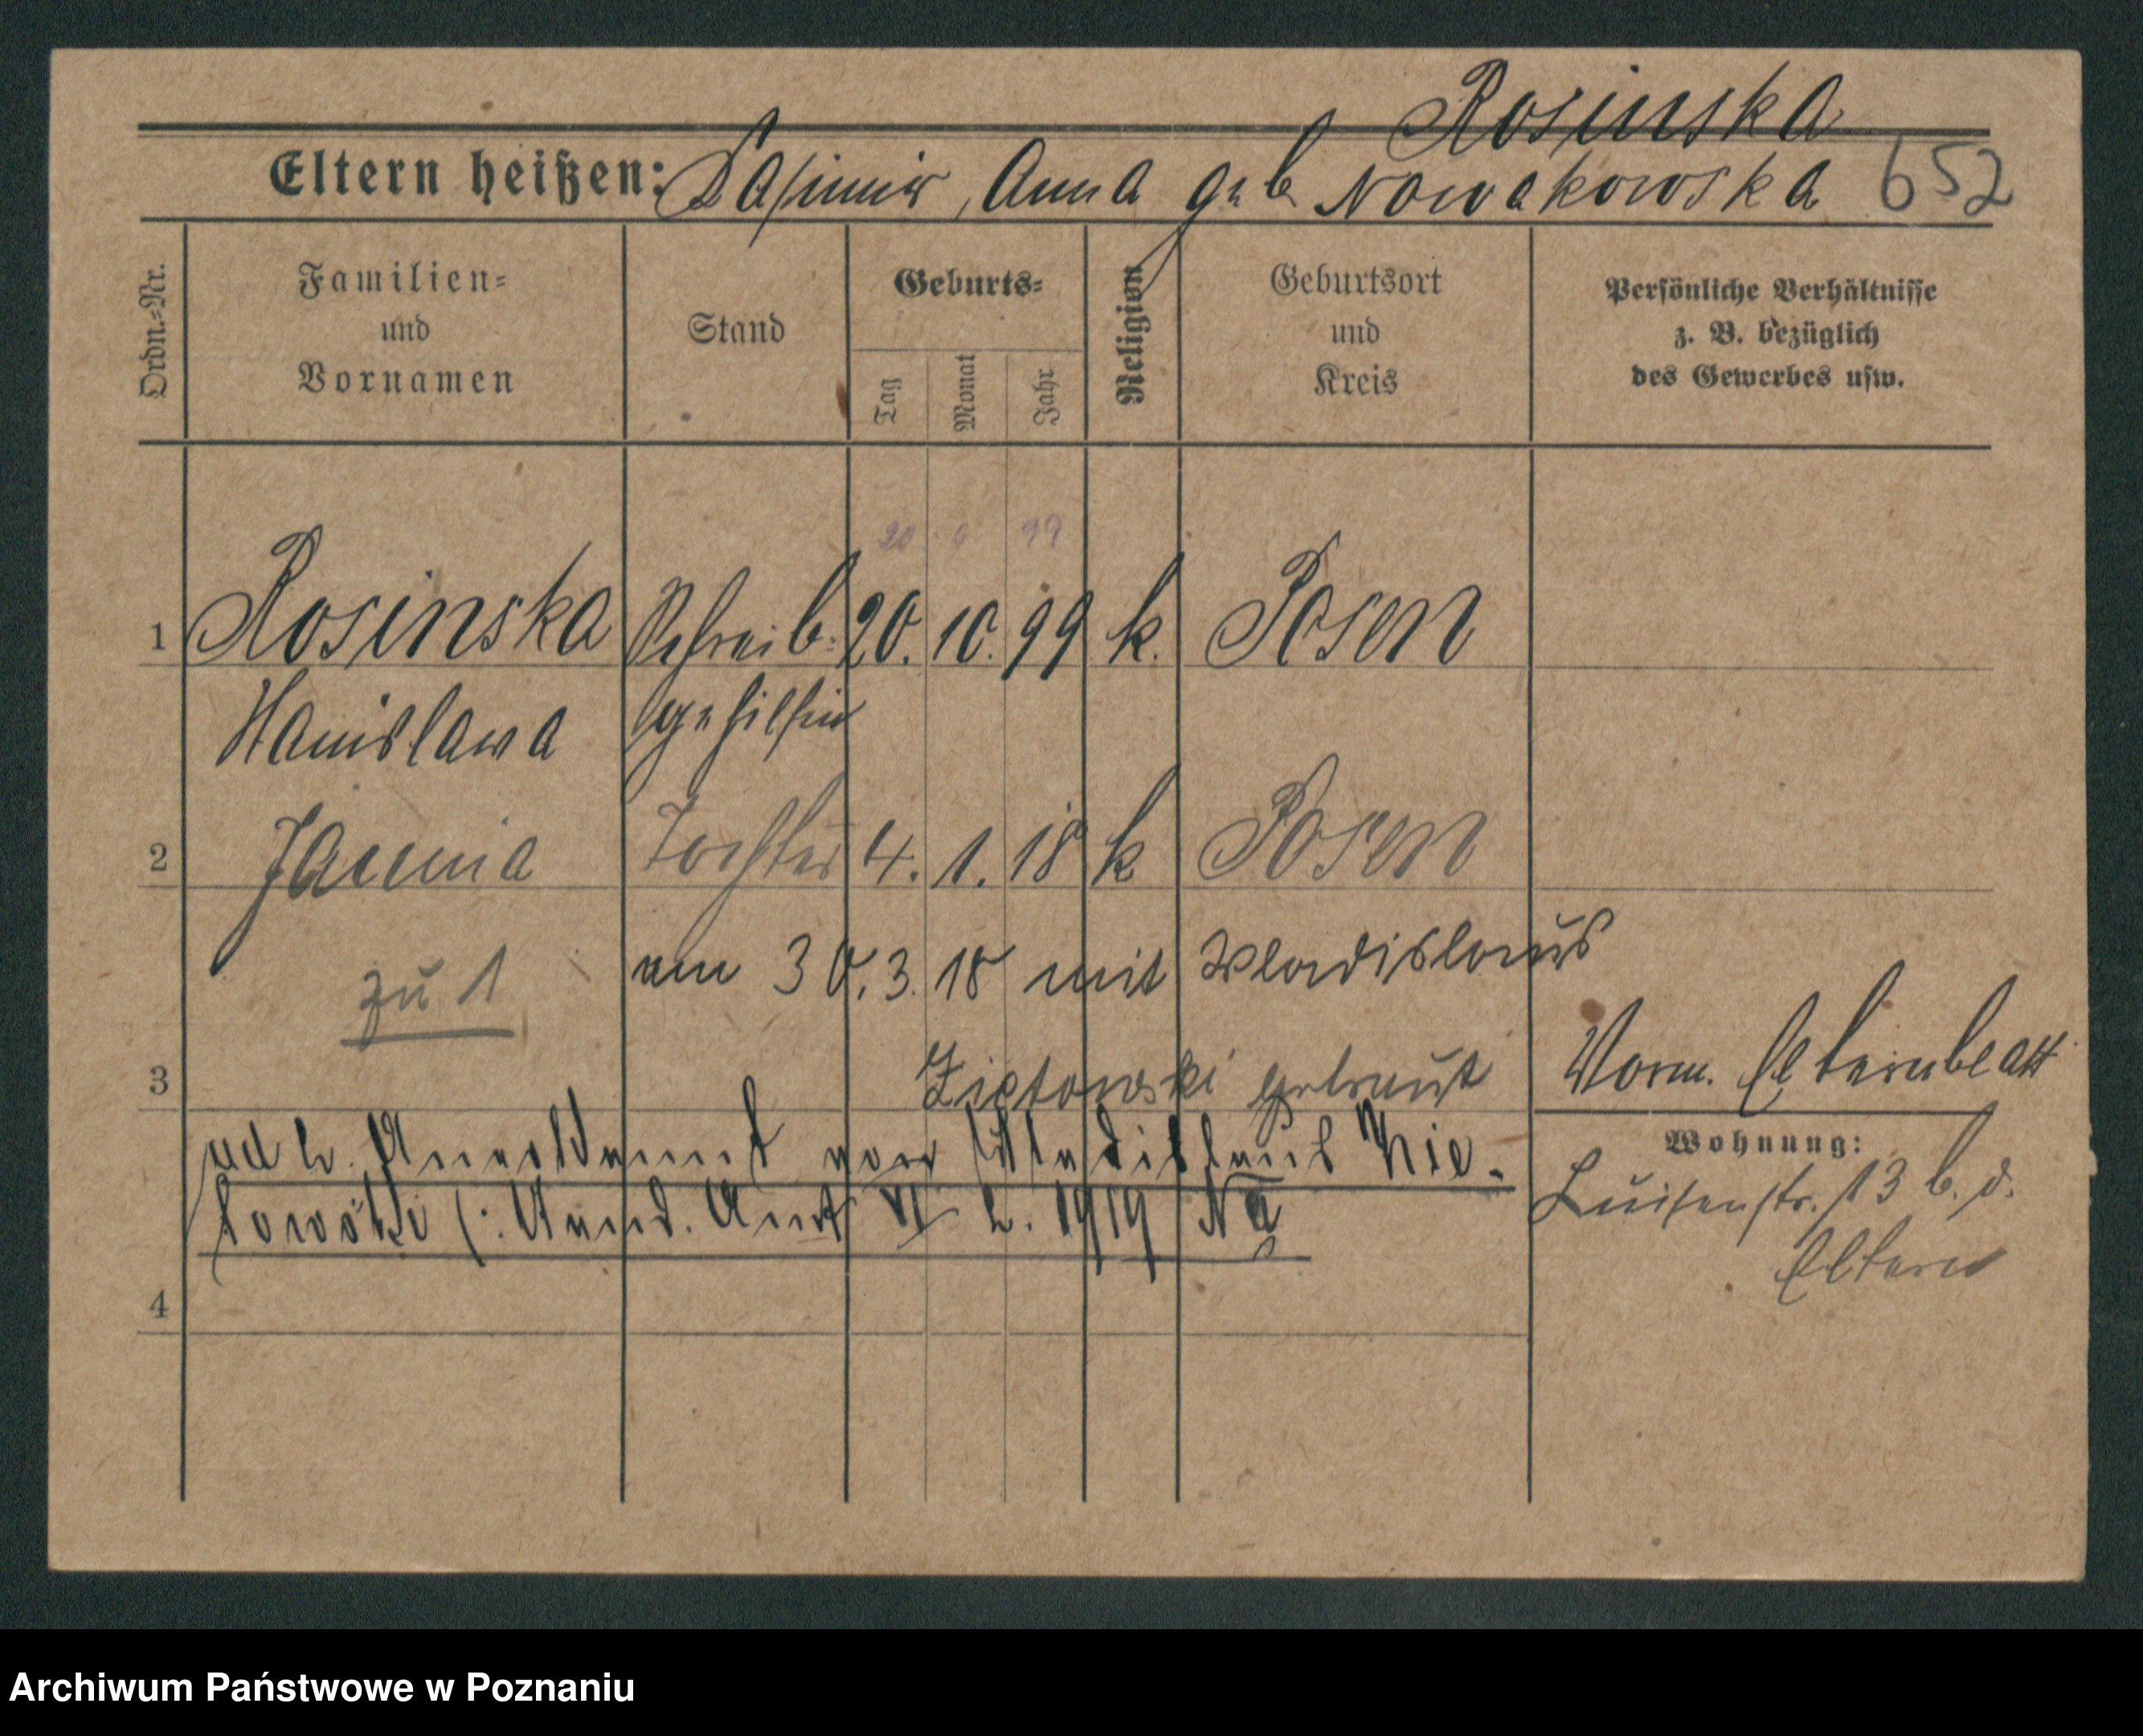 Rosinska
Eltern heißen: Kasimir, Anna geb Nowakowska 652
Ordn.-Nr.
Familien-
und
Vornamen
Stand
Geburts-
Tag
Monat
Jahr
Religion
Geburtsort
und
Kreis
Persönliche Verhältnisse
z. B. bezüglich
des Gewerbes usw.
20 9 99
1 Rosinska Schreib- 20. 10. 99 k. Posen
Stanislawa gehilfin
2 Jannia Tochter 4. 1. 18 k Posen
zu 1 am 30.3.18 mit Wladislaus
3 Zietowski getraut
Vorm. Elternblatt
Wohnung:
Luisenstr. 13 b. d.
Eltern
von Wladislaus Kie-
1919
4
Archiwum Państwowe w Poznaniu